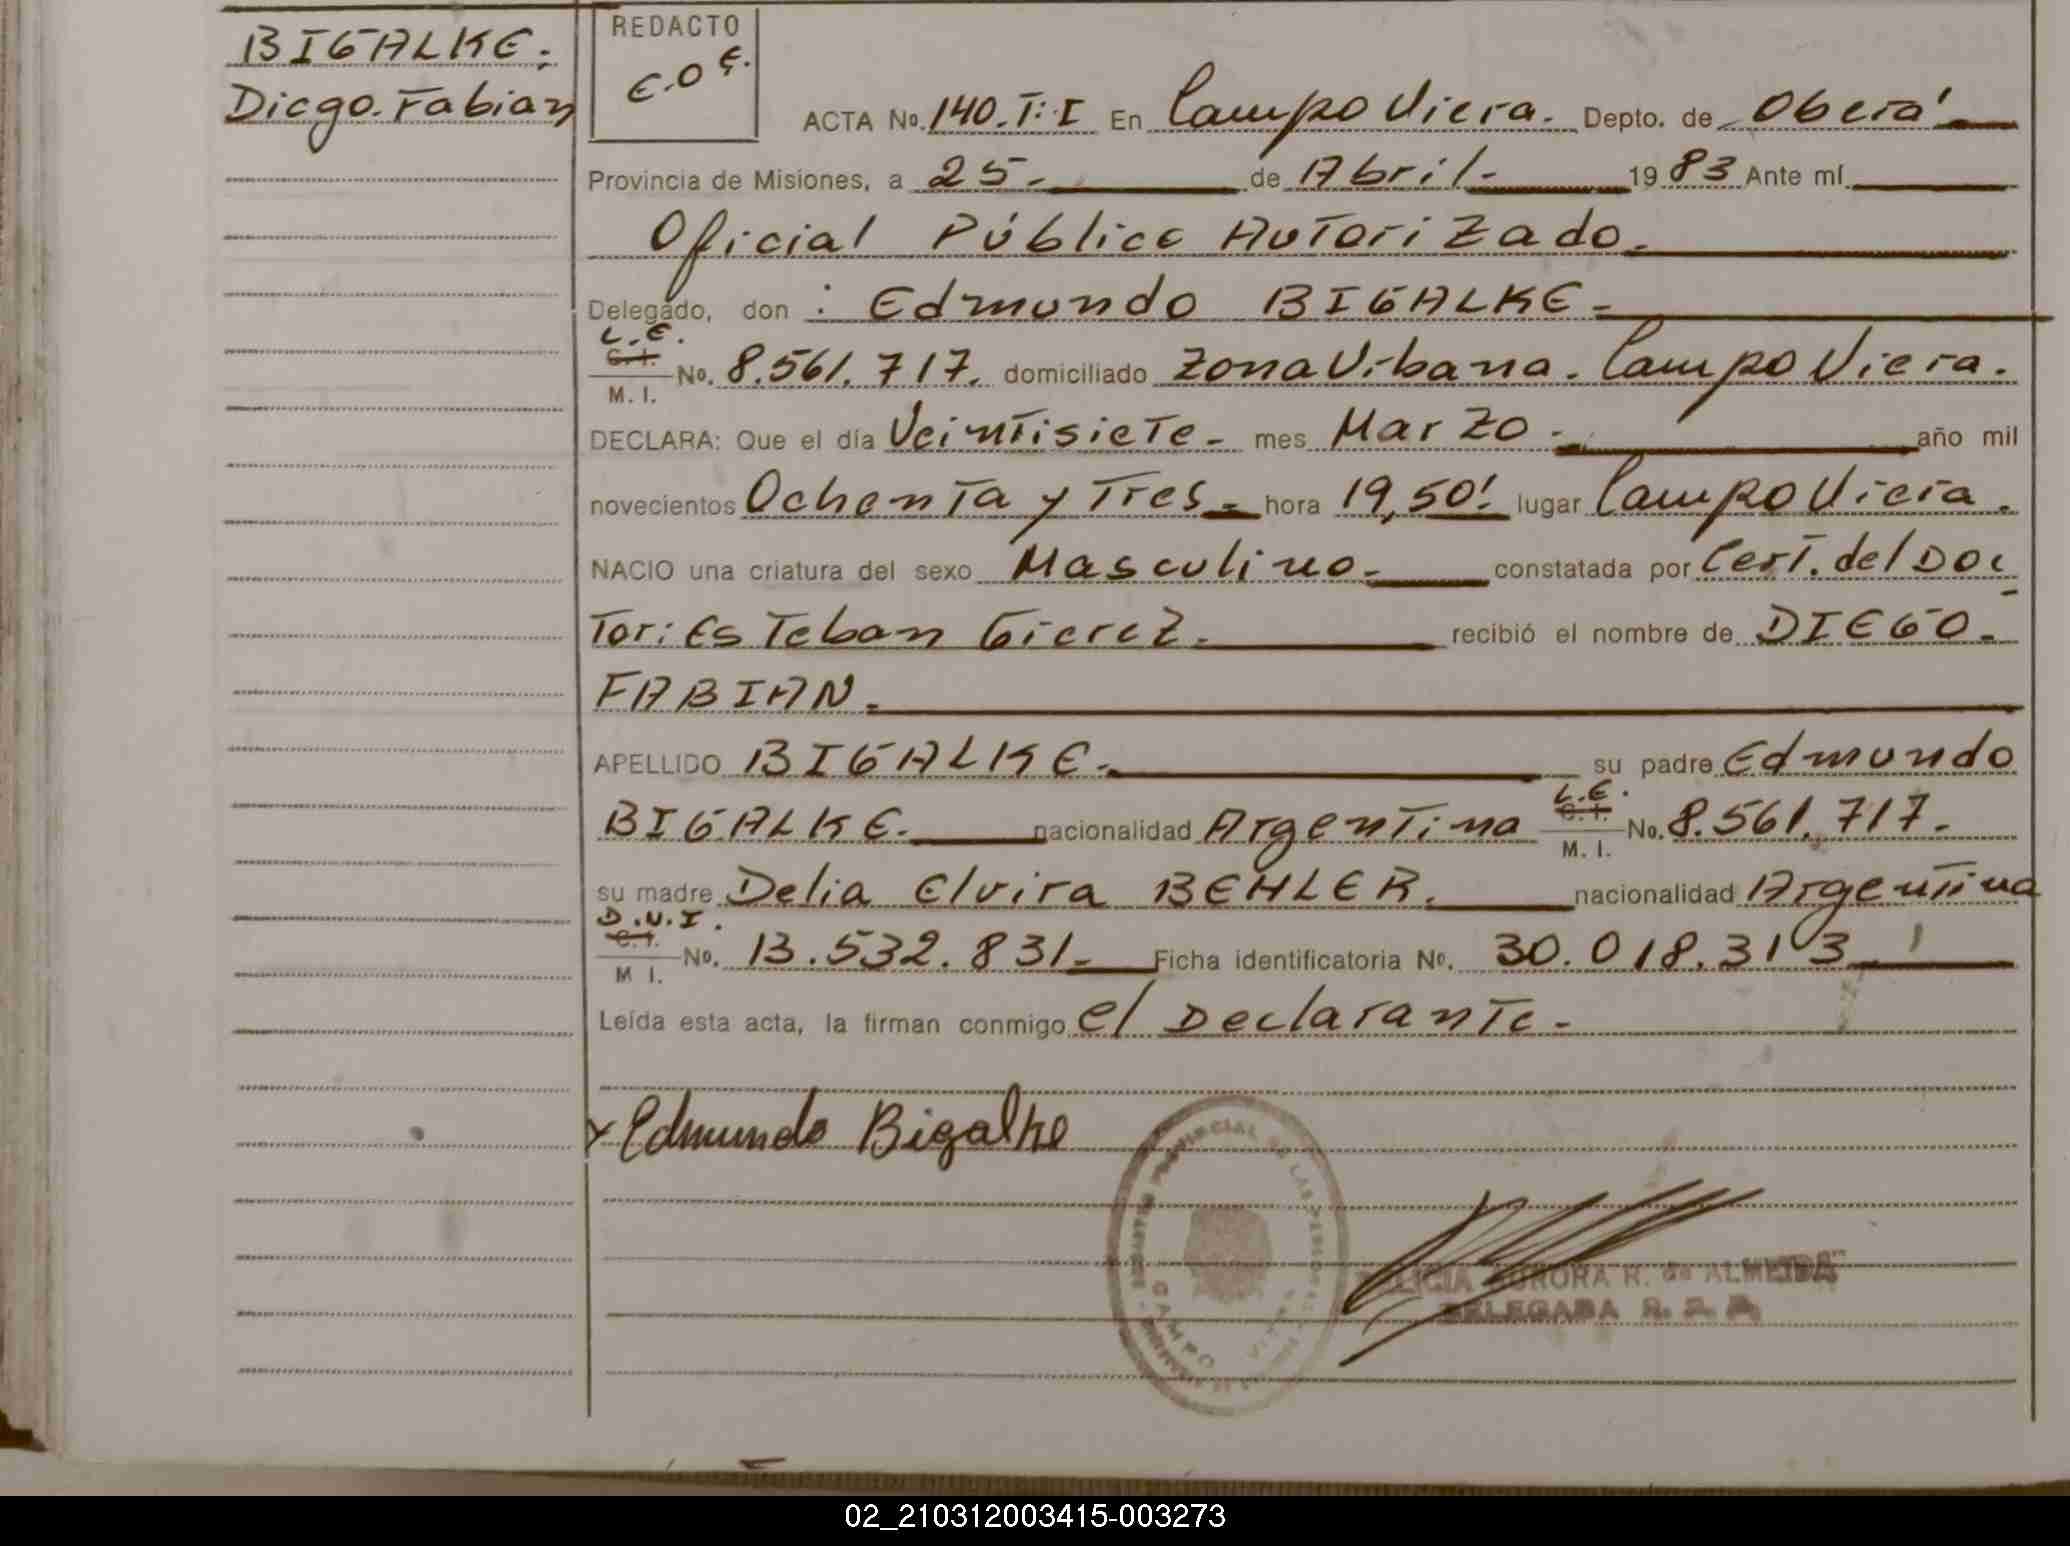 BIGALKE;
Diego. Fabian
REDACTO
E.O.E.
ACTA No. 140. T: I En Campo Viera. Depto. de Oberá
Provincia de Misiones, a 25 de Abril 1983 Ante mí
Oficial Público Autorizado.
Delegado, don : Edmundo BIGALKE
L.E.
C.I.
M. I. No. 8.561.717. domiciliado Zona Urbana. Campo Viera.
DECLARA: Que el día Veintisiete mes Marzo año mil
novecientos Ochenta y Tres hora 19,50' lugar Campo Viera.
NACIO una criatura del sexo Masculino constatada por Cert. del Doc
Tor: Esteban Gierez. recibió el nombre de DIEGO
FABIAN.
APELLIDO BIGALKE. su padre Edmundo
BIGALKE. nacionalidad Argentina L.E. C.I. M. I. No. 8.561.717.
su madre Delia Elvira BEHLER. nacionalidad Argentina
D.N.I.
C.I.
M I. No. 13.532.831 Ficha identificatoria No. 30.018.313
Leída esta acta, la firman conmigo el Declarante.
x Edmundo Bigalke
PROVINCIAL DE LAS PERSONAS
CAMPO VIERA
AURORA R. de ALMEIDA
DELEGADA R. P. P.
02_210312003415-003273